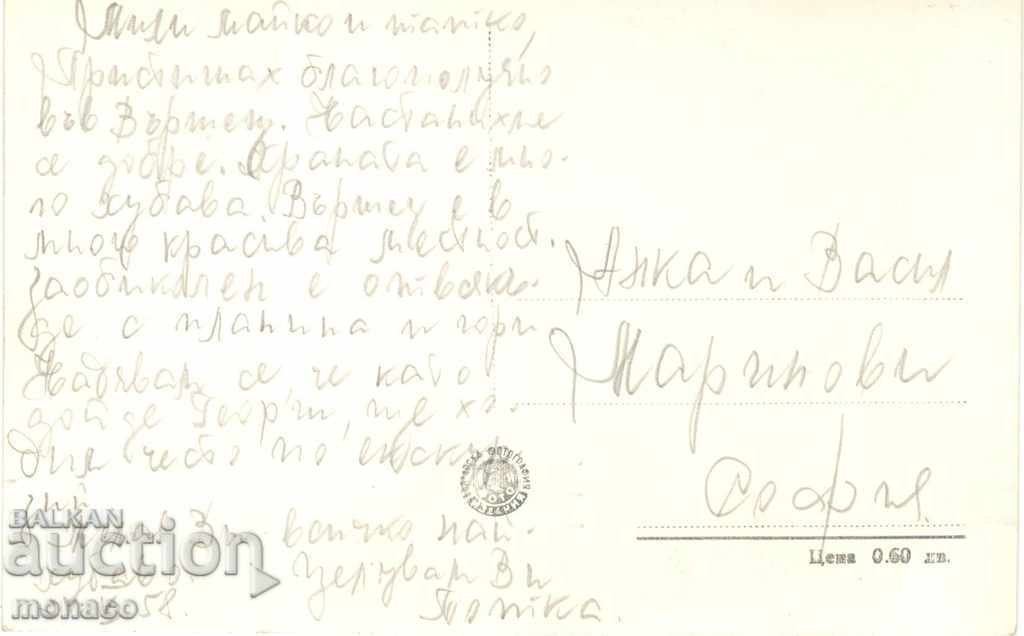 Мили майко и татко,
Пристигнах благополучно
във Вършец. Настанихме
се добре. Храната е мно-
го хубава. Вършец е в
много красива местност.
Заобиколен е отвсякъ-
де с планина и гори
Надявам се, че като
дойде Георги, ще хо-
дим често по екскур-
зии.
Ви всичко най-
Целувам Ви
58. Потка
Анка и Васил
Маринови
София
БЪЛГАРСКА ФОТОГРАФИЯ
ФОТО
Цена 0.60 лв.
BALKAN
auction
monaco